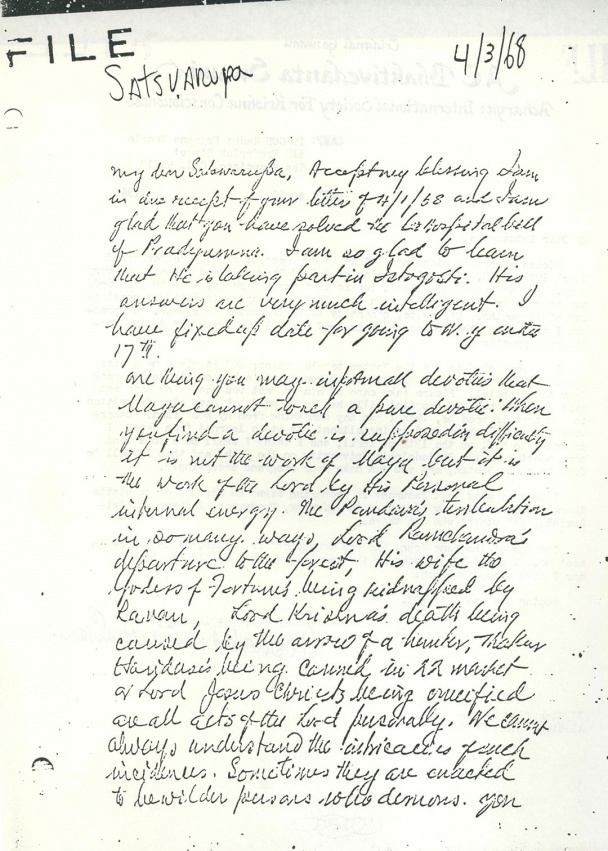 FILE
Satsvarupa
4/3/68
My dear Satsvarupa, Accept my blessing I am
in due receipt of your letter of 4/1/68 and I am
glad that you have solved the hospital bill
of Pradyumna. I am so glad to learn
that He is taking part in Istogosti. His
answers are very much intelligent. I
have fixed up date for going to N.Y on the
17th.
One thing you may inform all devotees that
Maya cannot touch a pure devotee. When
you find a devotee is supposed in difficulty
it is not the work of Maya but it is
the work of the Lord by His Personal
internal energy. The Pandava's tribulation
in so many ways, Lord Ramchandra's
departure to the forest, His wife the
Goddess of Fortune's being kidnapped by
Ravan, Lord Krishna's death being
caused by the arrow of a hunter, Thakur
Haridas's being caned in 22 market
or Lord Jesus Christ's being crucified
are all acts of the Lord personally. We cannot
always understand the intricacies of such
incidences. Sometimes they are enacted
to bewilder persons who demons. you